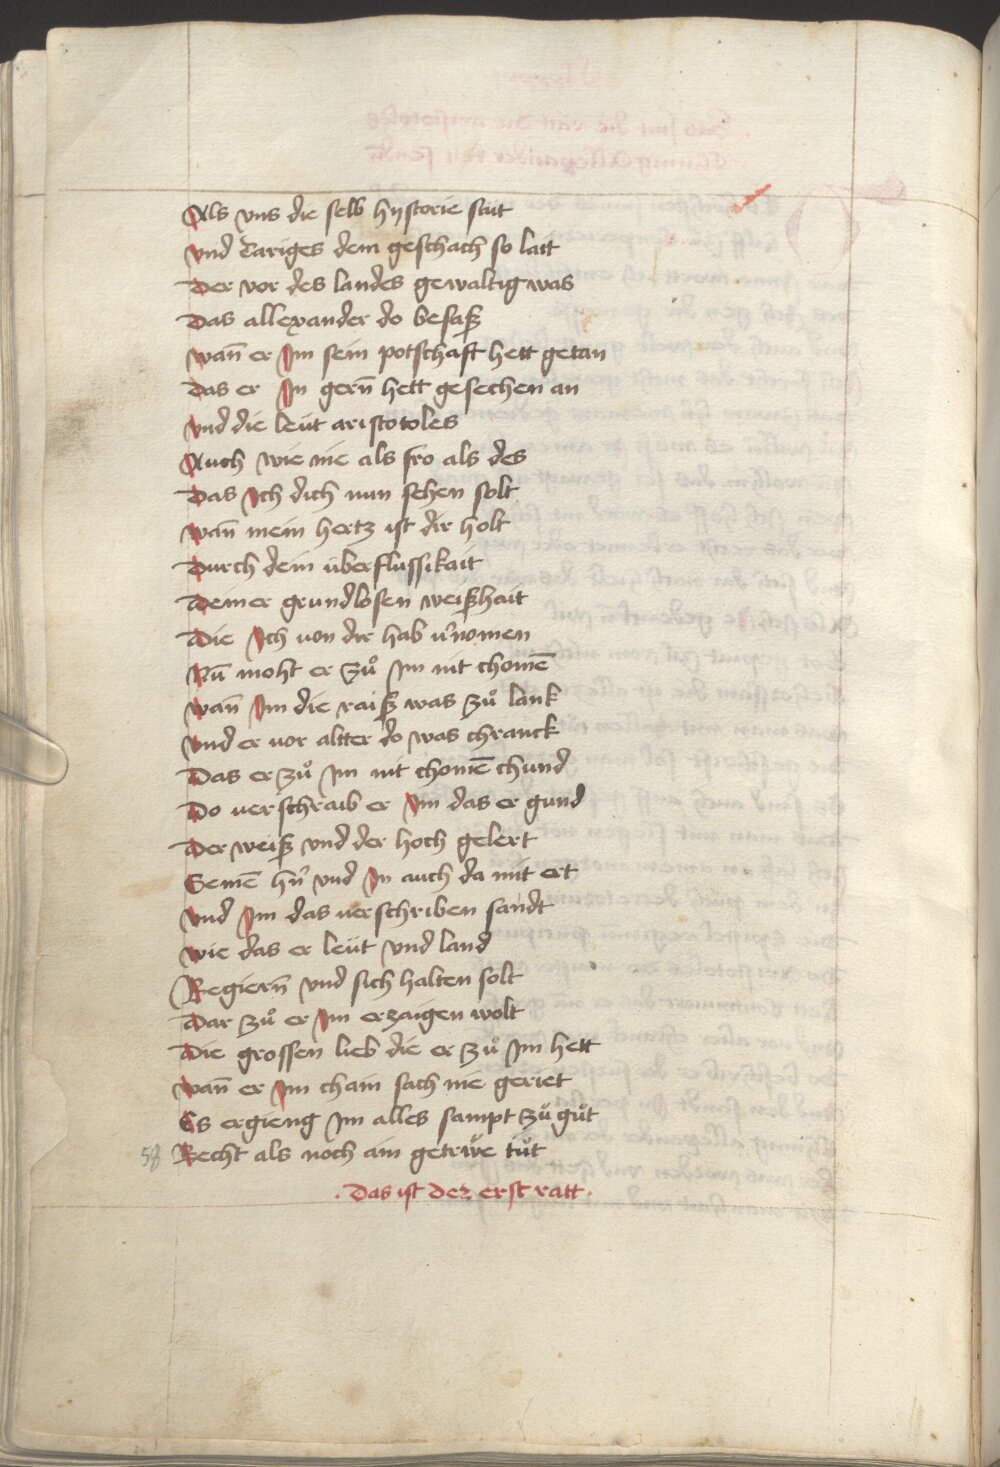 Als vns die selb hystorie sait
vnd Eariges dem geschach so latt
Der vor des landes gewaltig was
Das allexander do besaß
wan̄ er Im sein potschaft hett getan
Das er In gern̄ hett gesechen an
vnd die leüt aristotoles
Auch wie nie als fro als des
Das Ich dich nun sehen solt
wan̄ mein hertz ist dir holt
Durch dein überflussikait
Deiner grundlosen weißhait
Die Ich von dir hab v̓nomen
Nū moht er zuͦ Im nit chomē
wan̄ Im die raiß was zuͦ lank
vnd er vor altter do was chranck
Das er zuͦ Im nit chomē chund
Do verschraib er Im das er gund
Der weiß vnd der hoch gelert
Seinē hn̓ vnd In auch da mit ert
vnd Im das verschriben sandt
wie das er leüt vnd land
Regiern̄ vnd sich halten solt
Dar zuͦ er Im erzaigen wolt
Die grossen lieb die er zuͦ Im hett
wan̄ er Im chain sach nie geriet
Es ergieng Im alles sampt zuͦ guͦt
58 Recht als noch ain getrẅe tuͦt
· Das ist der erst ratt ·